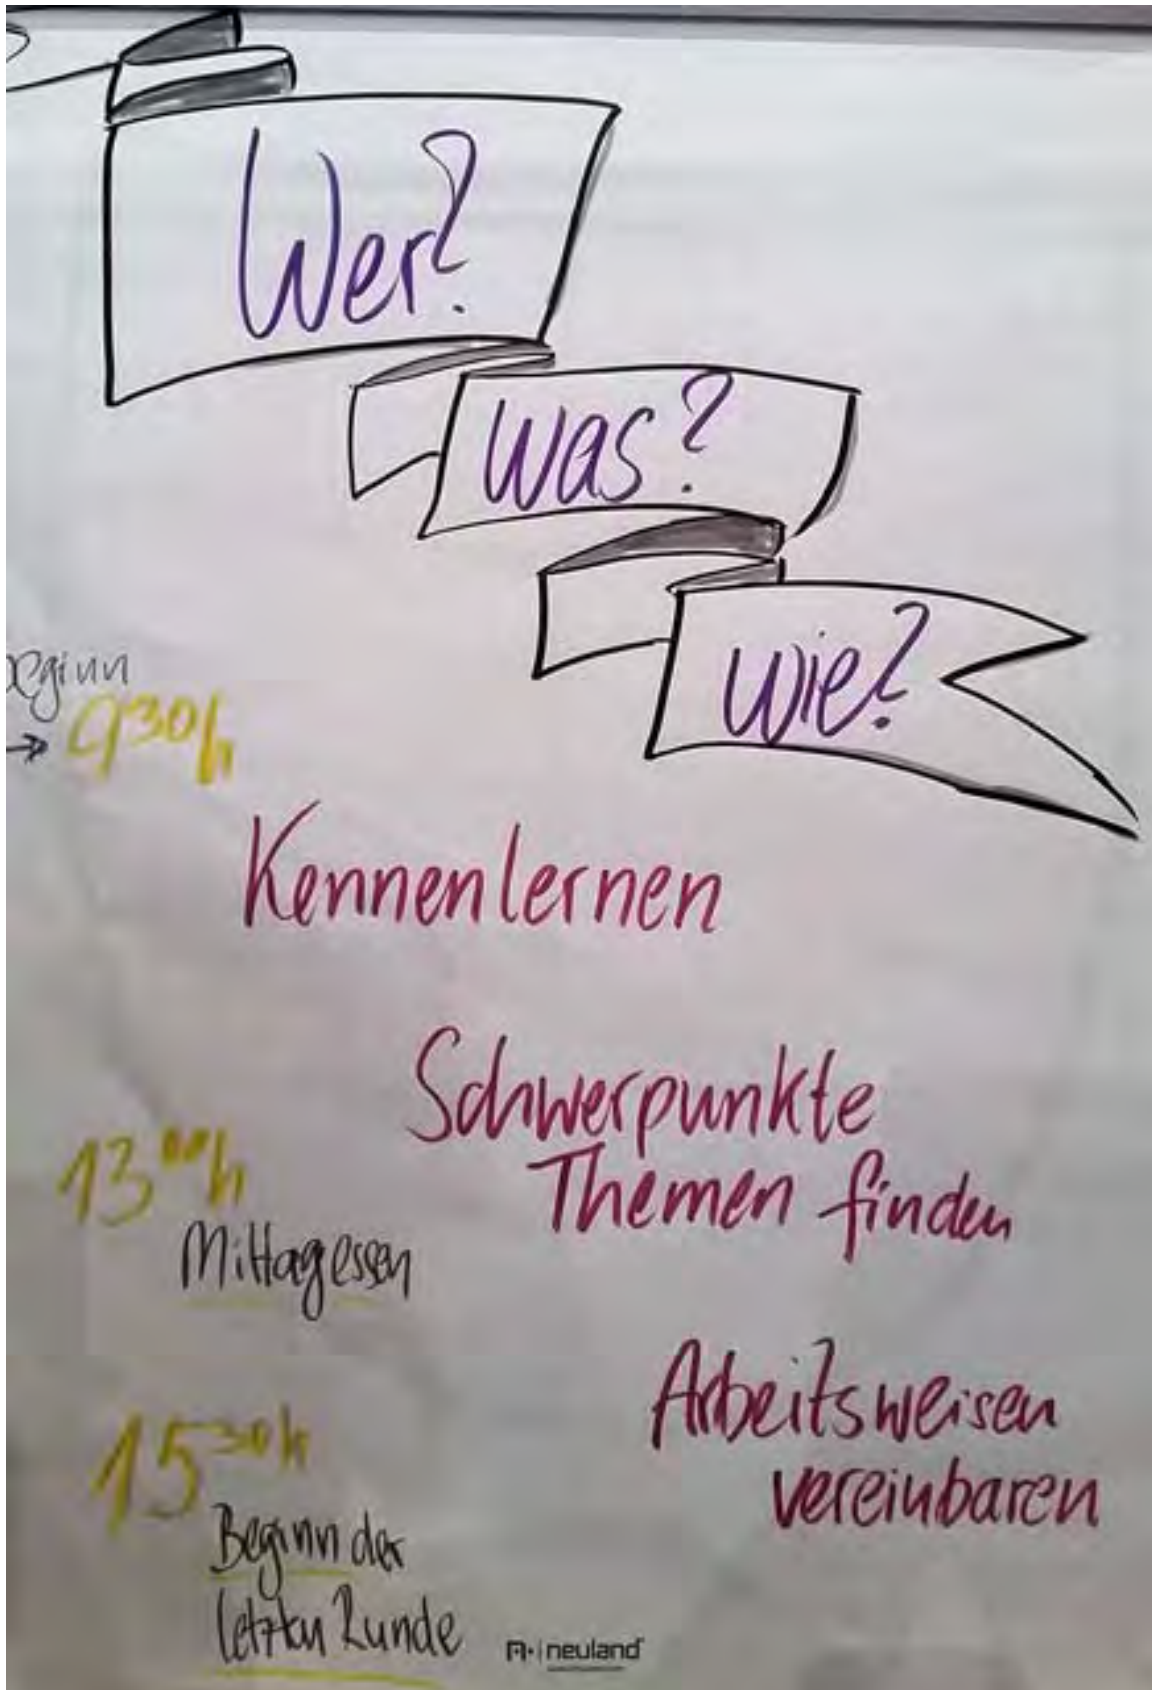 Wer?
Was?
Wie?
Beginn
→ 9³⁰h
Kennenlernen
Schwerpunkte
Themen finden
13⁰⁰h
Mittagessen
Arbeitsweisen
vereinbaren
15³⁰h
Beginn der
letzten Runde
neuland